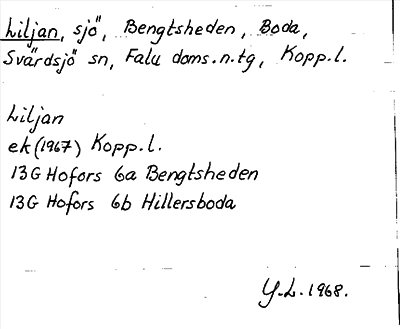 Liljan, sjö, Bengtsheden, Boda,
Svärdsjö sn, Falu doms.n.tg, Kopp.l.
Liljan
ek (1967) Kopp.l.
13G Hofors 6a Bengtsheden
13G Hofors 6b Hillersboda
Y.L. 1968.